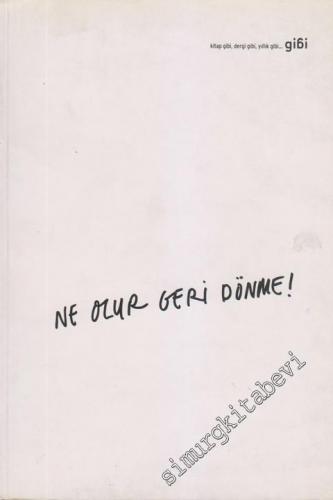 kitap gibi, dergi gibi, yıllık gibi... gibi
NE OLUR GERİ DÖNME!
simurgkitabevi